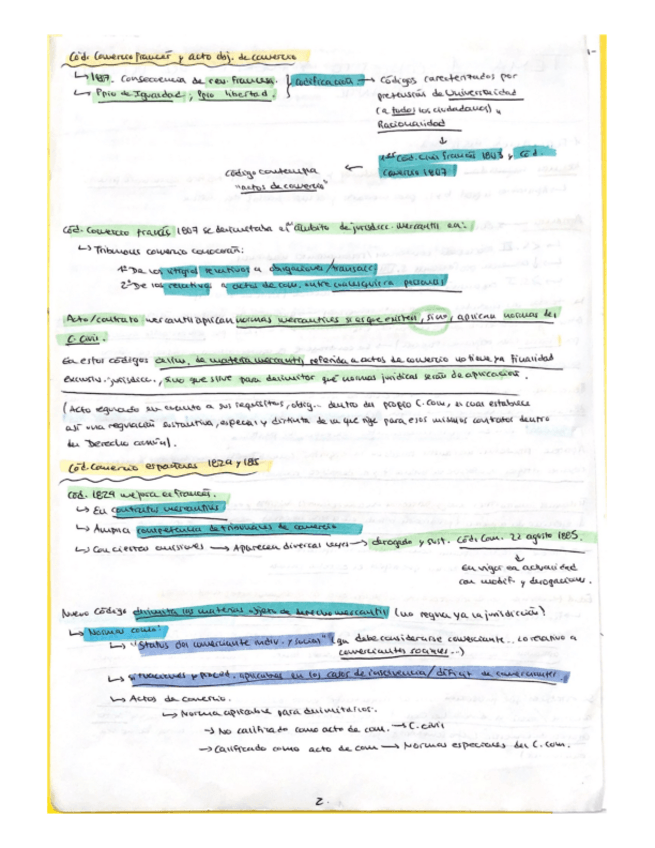 Cód. Comercio francés y acto obj. de comercio
↳ 1807. Consecuencia de rev. Francesa. } codificación → Códigos caracterizados por
↳ Ppio de Igualdad, Ppio libertad. pretensión de Universalidad
(a todos los ciudadanos) y
Racionalidad
↓
1er Cód. Civil Francés 1803 y Cód.
Comercio 1807
←
Código contempla
"actos de comercio"
Cód. Comercio francés 1807 se delimitaba el ámbito de jurisdicc. mercantil en:
↳ Tribunales comercio conocerán:
1º De los litigios relativos a obligaciones/transacc.
2º De los relativos a actos de com. entre cualesquiera personas
Acto/contrato mercantil aplican normas mercantiles si es que existen, si no, aplican normas del
C. Civil.
En estos códigos de materia mercantil referida a actos de comercio no tiene ya finalidad
exclusiv. jurisdicc., sino que sirve para delimitar qué normas jurídicas serán de aplicación.
(Acto regulado en cuanto a sus requisitos, oblig... dentro del propio C.Com, el cual establece
así una regulación sustantiva, especial y distinta de la que rige para esos mismos contratos dentro
del Derecho común).
Cód. Comercio españoles 1829 y 185
Cód. 1829 mejora el francés.
↳ En contratos mercantiles
↳ Amplía competencia de tribunales de comercio
↳ Con ciertas omisiones → Aparecen diversas leyes → derogado y sust. Cód. Com. 22 agosto 1885.
↓
En vigor en actualidad
con modif. y derogaciones.
Nuevo Código delimita las materias objeto de derecho mercantil (no regula ya la jurisdicción)
↳ Normas como:
↳ "Status del comerciante indiv. y social" (qu debe considerarse comerciante.. lo relativo a
comerciantes sociales...)
↳ situaciones y proced. aplicables en los casos de insolvencia/dificult. de comerciantes.
↳ Actos de comercio.
↳ Norma aplicable para delimitarlos.
→ No calificado como acto de com. → C.civil
→ Calificado como acto de com → Normas especiales del C.com.
2.